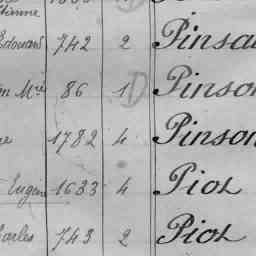 Etienne
Edouard 742 2 Pinsa
en Mie 86 1 Pinson
1782 4 Pinson
Eugene 1633 4 Piot
Charles 743 2 Piot